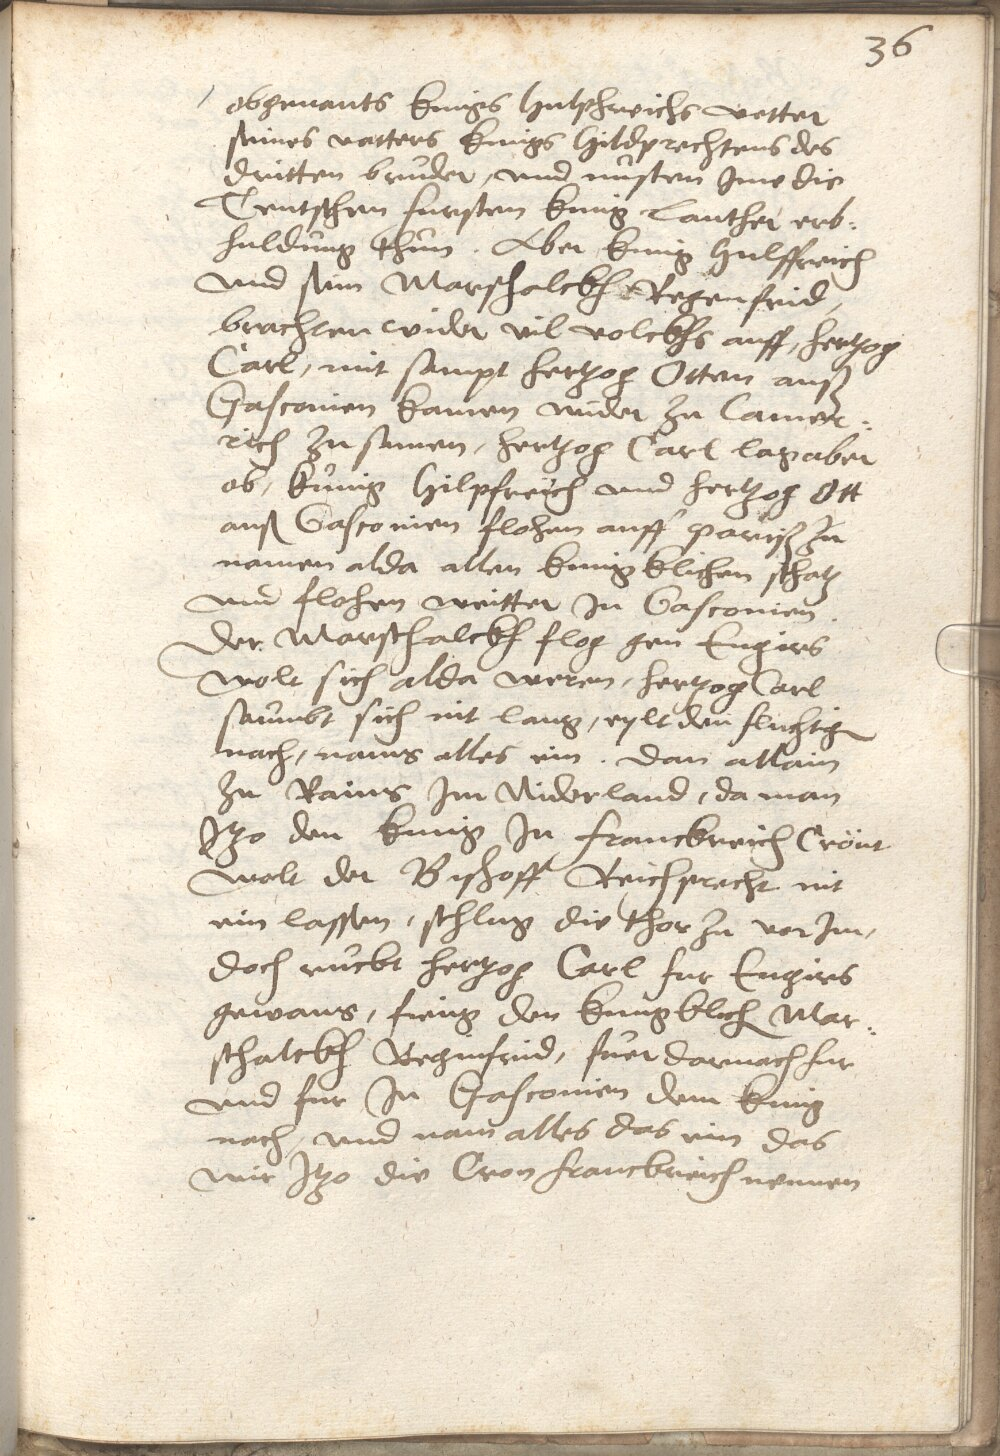 36
obgenants kunigs Hilpfreichs vetter
seines vatters kunigs Hildprechtens des
dritten bruder, und musten Ime die
Teutschen fursten kunig Lauther erb:
huldung thun. Aber kunig Hilffreich
und sein Marschalckh Regenfrid,
brachten wider vil volckhs auff, hertzog
Carl, mit sampt hertzog Otten auß
Gasconien kamen wider zu Camer:
rich zusamen, hertzog Carl lag aber
ob, kunig Hilpfreich und hertzog Ott
auß Gasconien flohen auff Pariß zu
namen alda allen kunigklichen schatz
und flohen weitter In Gasconien.
Der Marschalckh flog gen Engirs
wolt sich alda weren, hertzog Carl
saumbt sich nit lang, eylt den fluchtign
nach, nams alles ein. dan allain
zu Rains Im Niderland, da man
Itzo den kunig In franckreich Crönt
wolt der Bischoff Reichprecht nit
ein lassen, schlug die thor zu vor Im,
doch ruckt hertzog Carl fur Engirs
gewans, fieng den kunigklich Mar:
schalckh Reginfrid, fuer darnach fur
und fur In Gasconien dem kunig
nach, und nam alles das ein das
wir Itzo die Cron franckreich nennen